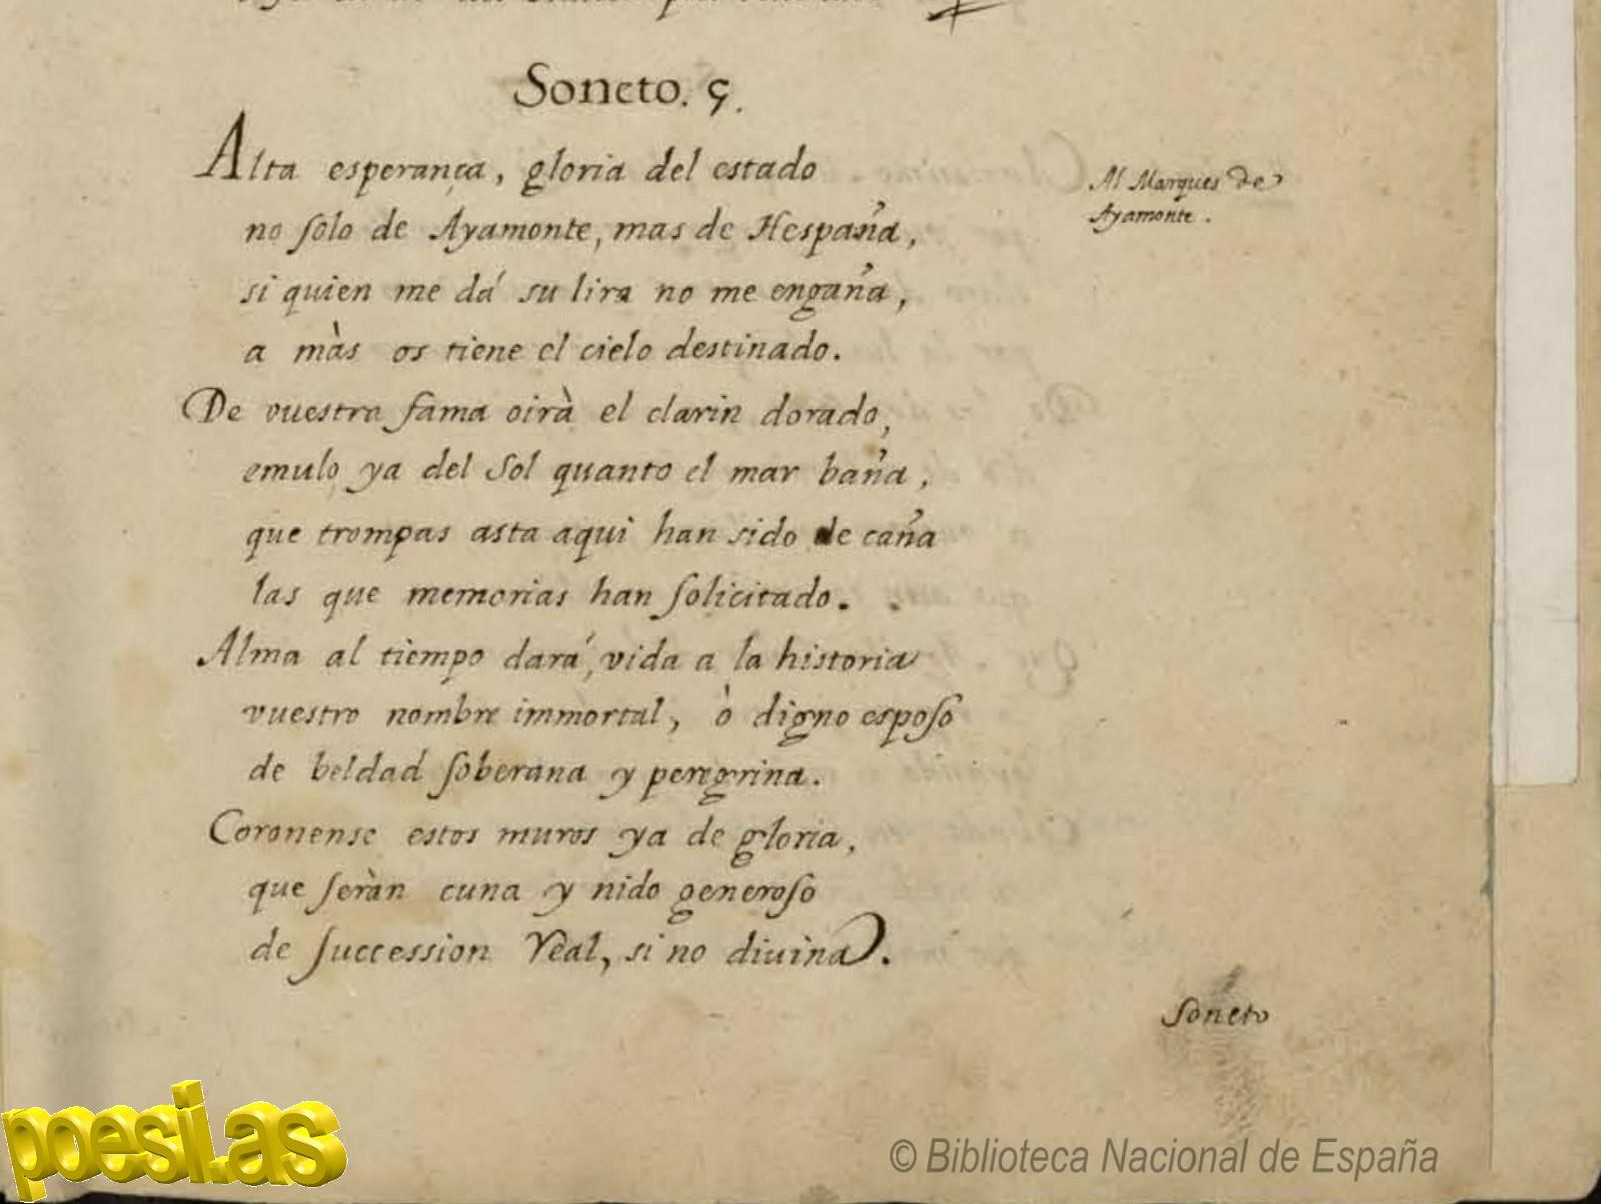 Soneto. 5.
Alta esperança, gloria del estado
Al Marques de
Ayamonte.
no solo de Ayamonte, mas de Hespaña,
si quien me dá su lira no me engaña,
a màs os tiene el cielo destinado.
De vuestra fama oirà el clarin dorado,
emulo ya del Sol quanto el mar baña,
que trompas asta aqui han sido de caña
las que memorias han solicitado.
Alma al tiempo dará, vida a la historia
vuestro nombre immortal, ò digno esposo
de beldad soberana y peregrina.
Coronense estos muros ya de gloria,
que seràn cuna y nido generoso
de succession real, si no diuina.
Soneto
poesi.as
© Biblioteca Nacional de España